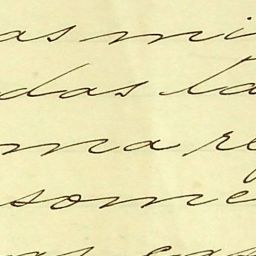 as mi
das ta
ma re
some